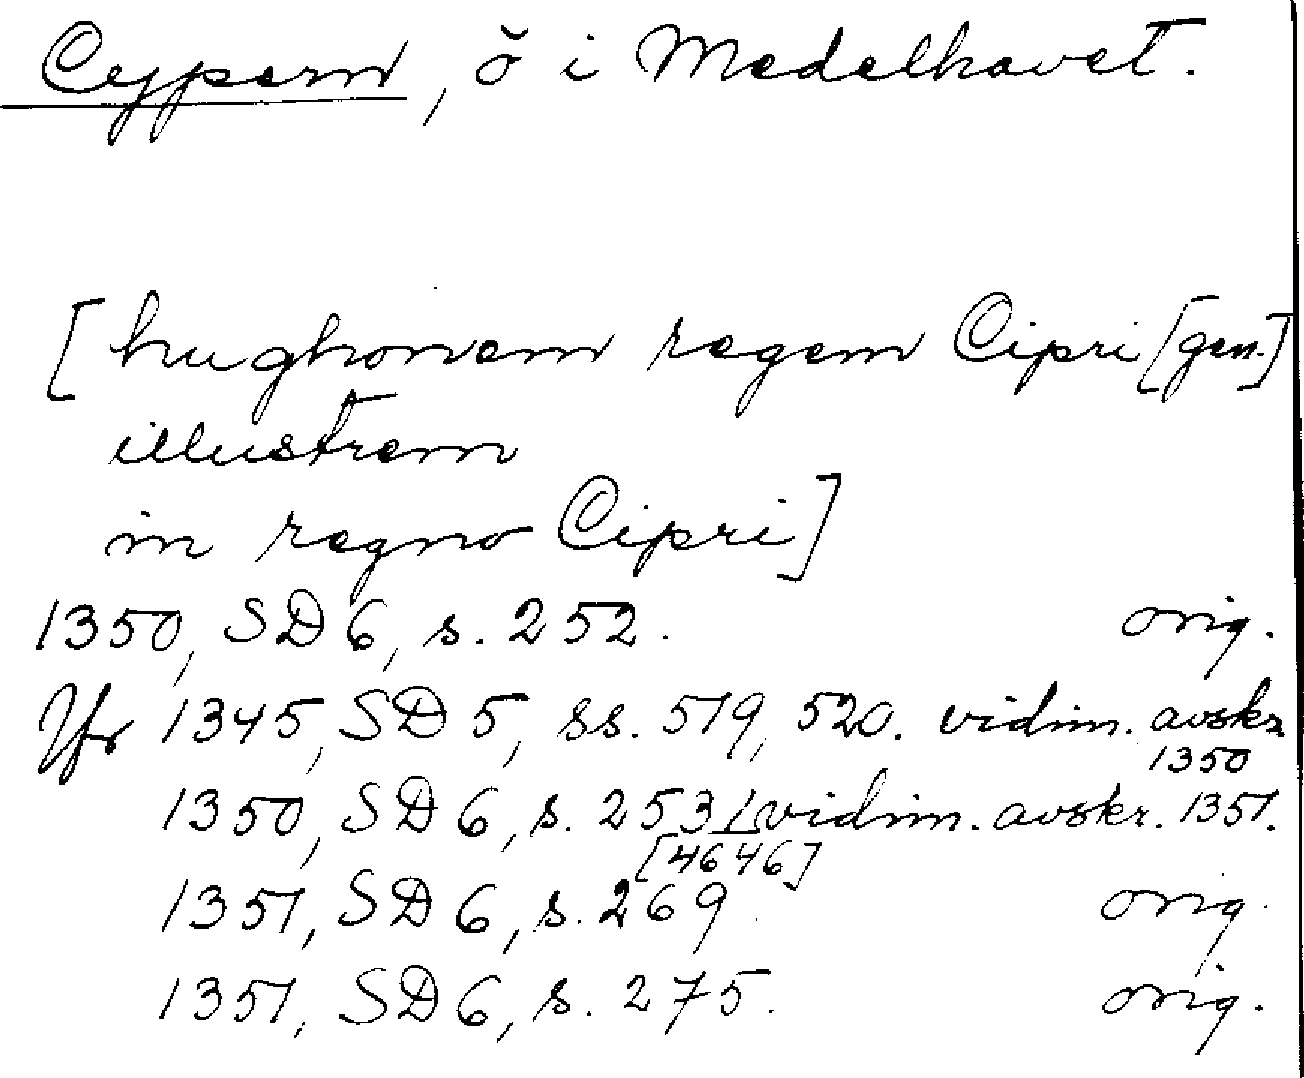 Cypern, ö i Medelhavet.
[hughonem regem Cipri [gen.]
illustrem
in regno Cipri]
1350, SD 6, s. 252. orig.
Jfr 1345, SD 5, ss. 519, 520. vidim. avskr.
1350
1350, SD 6, s. 253 vidim. avskr. 1351.
[4646]
1351, SD 6, s. 269. orig.
1351, SD 6, s. 275. orig.